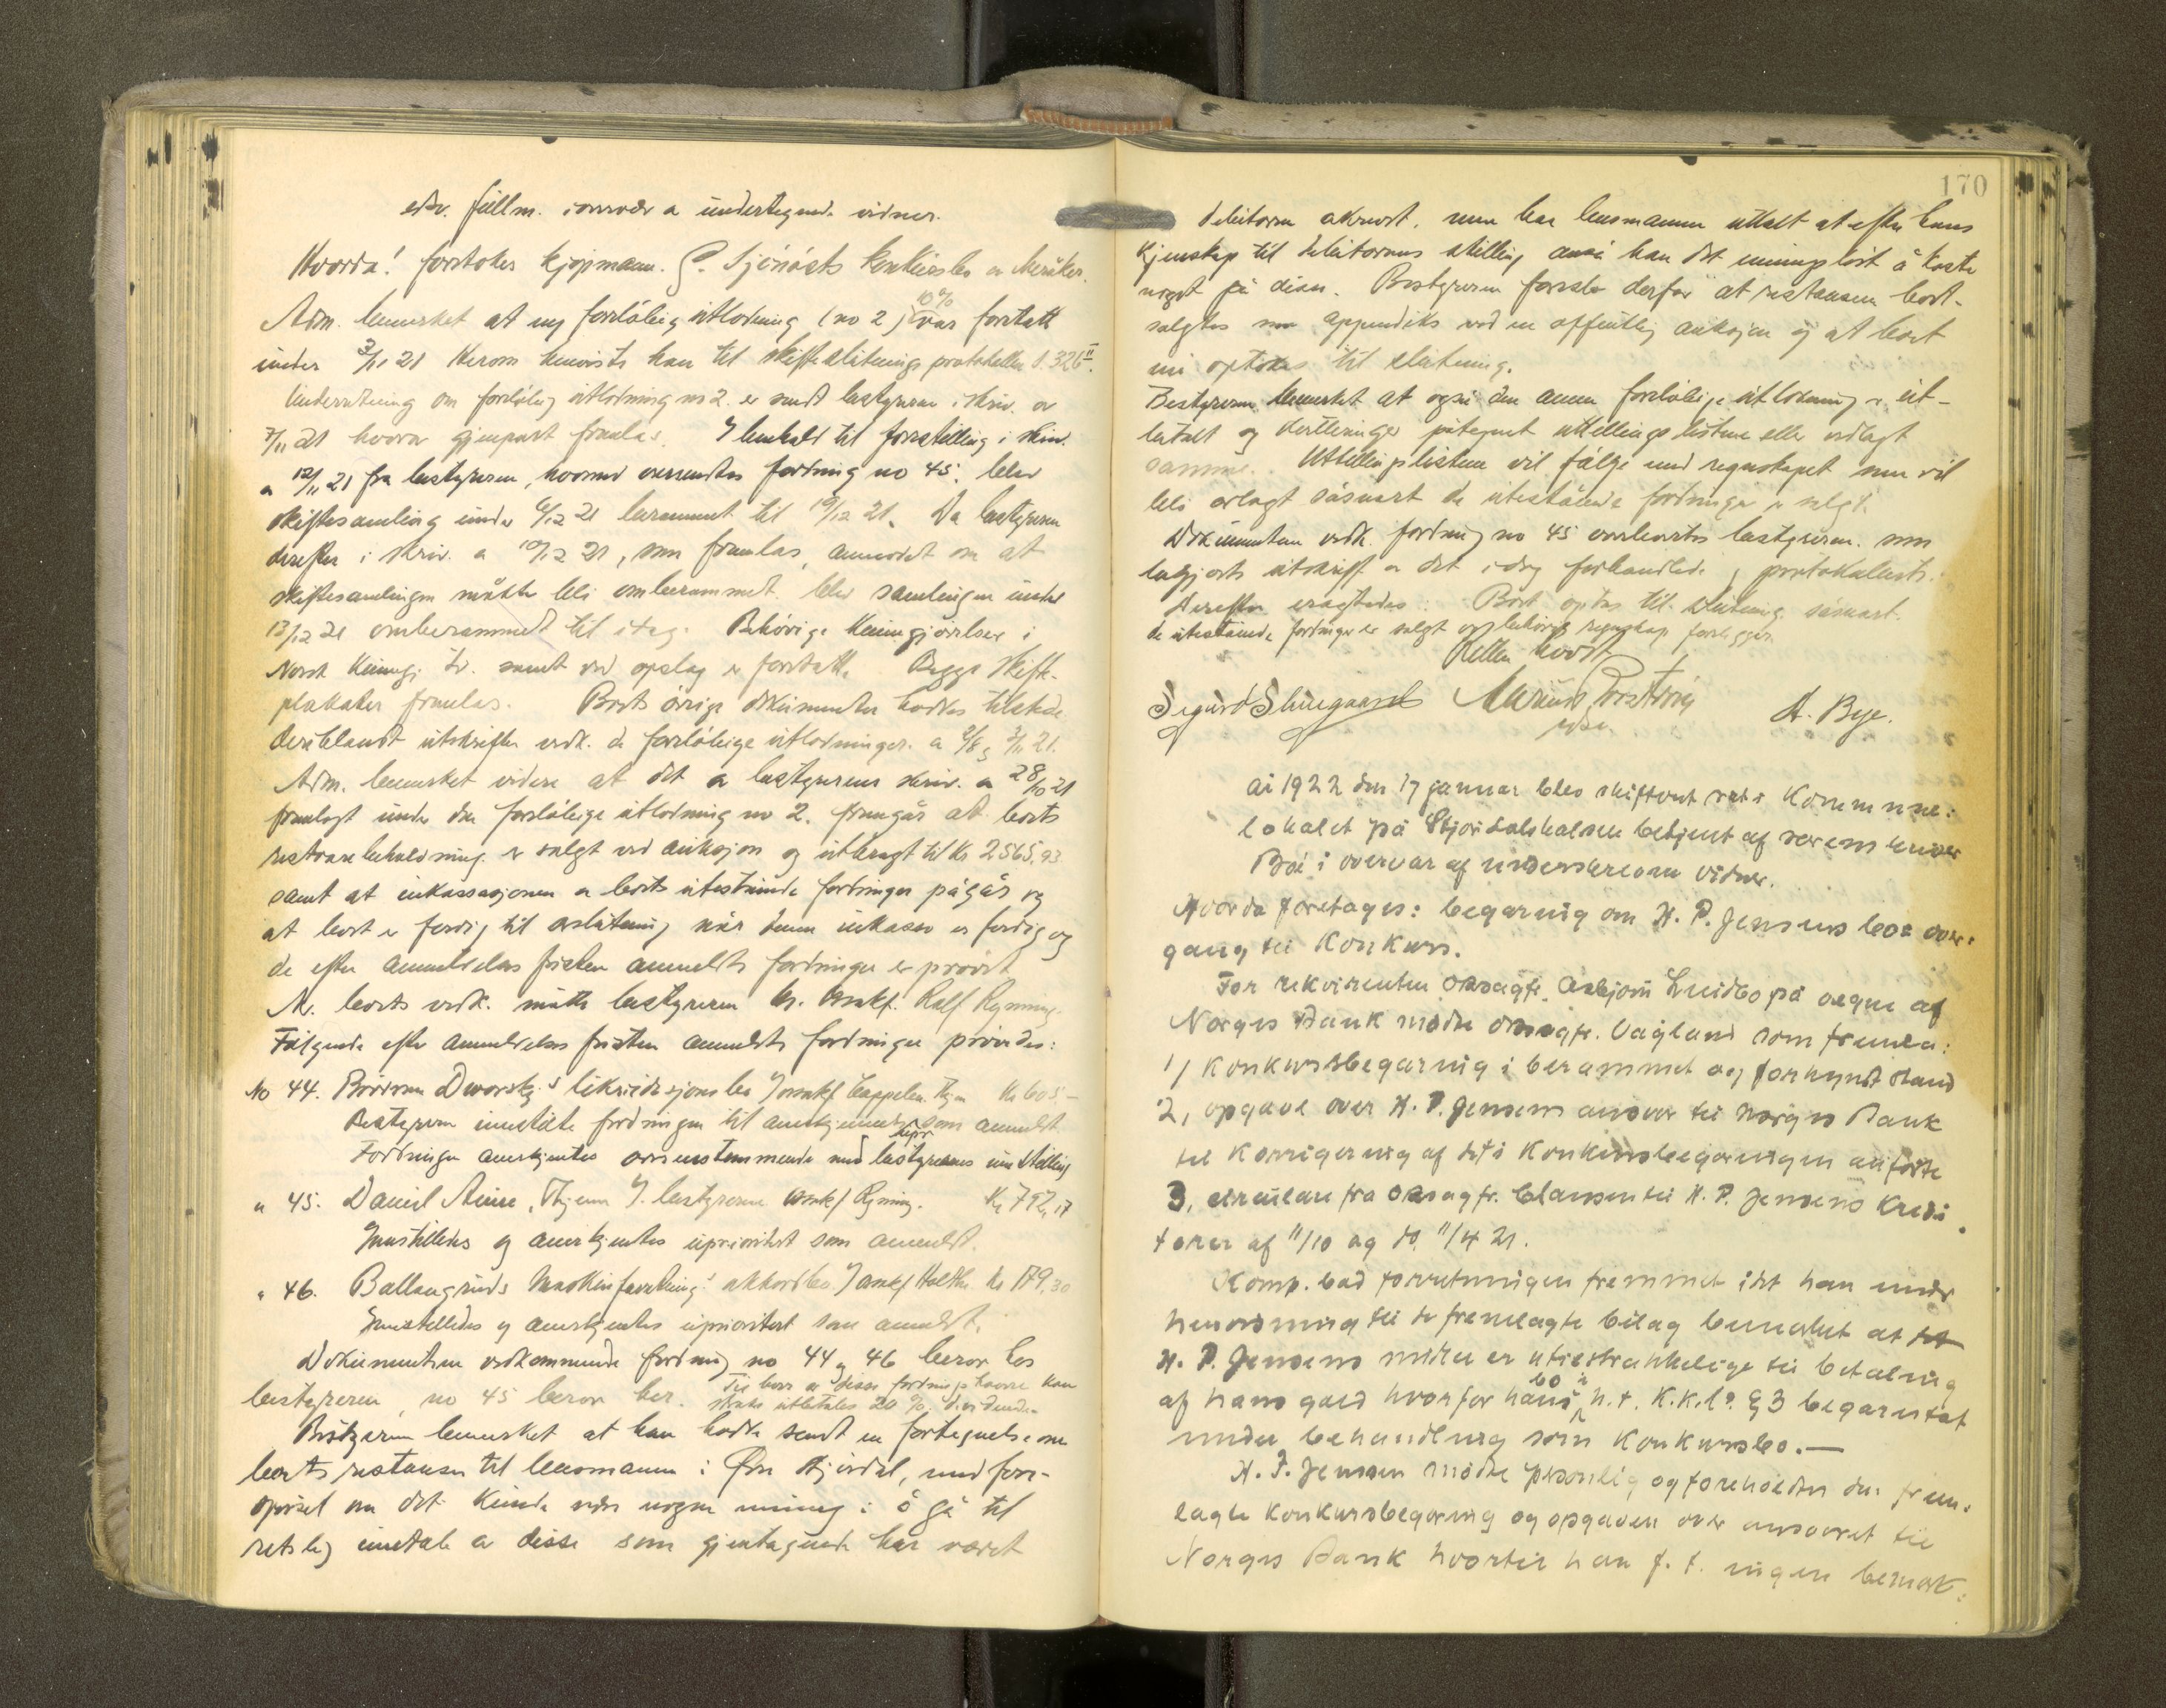 edv. fullm. i overvær a undertegnede vidner.
Hvorda! foretokes kjøpmann P. Sjönösts konkursbo av Meråker.
Adm. bemerket at ny foreløbig utlodning (no 2) 10% var foretatt
under 3/11 21 herom henvistes han til skiftesluttnings protokollen s. 326 II.
Underretning om foreløbig utlodning no 2. er sendt bestyreren i skriv. av
7/11 21 hvorav gjenpart fremlas. I henhold til forestilling i skriv.
a 12/11 21 fra bestyreren, hvormed oversendtes fordring no 45. blev
skiftesamling under 6/12 21 berammet til 19/12 21. Da bestyreren
derefter i skriv. a 10/12 21, som fremlas, anmodet om at
skiftesamlingen måtte bli omberammet. blev samlingen under
13/12 21 omberammet til idag. Behørige kunngjørelser i
Norsk Kunngj. tid. samt ved opslag er foretatt. Begge skifte-
plakater fremlas. Boets øvrige dokumenter hadtes tilstede
deriblandt utskrifter vedk. de foreløbige utlodninger. a 9/8 og 3/11 21.
Adm. bemerket videre at det a bestyrerens skriv. a 28/10 21
fremlagt under den foreløbige utlodning no 2. fremgår at boets
restvarebeholdning er solgt ved auksjon og utbragt til Kr 2565,93
samt at inkassasjonen a boets utestående fordringer pågår og
at boet er ferdig til avslutning når denne inkasso er ferdig og
de efter anmeldelses fristen anmeldte fordringer er prøvet
M. boets vedk. møtte bestyreren hr. Ovrskf. Rolf Ryssning.
Følgende efter anmeldelses fristen anmeldte fordringer prøvedes:
No 44. Dworsky's likvidasjonsbo v/ ovrskf Cappelen. Thjem Kr 605,-
Bestyreren innstilte fordringen til anerkjennelse som anmeldt.
Fordringen anerkjentes upr overensstemmende med bestyrerens innstilling
" 45. Daniel Aune, Thjem v/ bestyreren ovrskf Rysning. Kr 792,17
Innstilledes og anerkjentes uprioritert som anmeldt.
" 46. Ballangruds Maskinforretning's akkordbo v/ ovrskf Holthe Kr 179,30
Innstilledes og anerkjentes uprioritert som anmeldt.
Dokumentene vedkommende fordring no 44 og 46 beror hos
bestyreren, no 45 beror her. Til hver av disse fordringshavere kan
straks utbetales 20 % dividende.
Bestyreren bemerket at han hadde sendt en fortegnelse om
boets restanser til lensmannen i Øvre Stjørdal, med fore-
spørsel om det kunde være nogen mening i å gå til
retslig inntale av disse som gjentagende har været
170
debitorene avkrevet. men har lensmannen uttalt at efter hans
kjennskap til debitorenes stilling anså han det meningsløst å koste
noget på disse. Bestyreren foreslo derfor at restansen bort-
solgtes som appendiks ved en offentlig auksjon og at boet
nu optokes til slutning.
Bestyreren bemerket at også den annen foreløbige utlodning er ut-
betalt og kvitteringer påtegnet utdelingslistene eller vedlagt
samme. Utdelingslisten vil følge med regnskapet som vil
bli avlagt såsnart de utestående fordringer er solgt.
Dokumentene vedk. fordring no 45 overleveredes bestyreren som
begjærte utskrift av det idag forhandlede og protokollerte.
Derefter eragtedes: Boet optas til slutning såsnart
de utestående fordringer er solgt og behørig regnskap foreligger.
Retten hævet
Sigurd Skuegaard A. Bye.
Ar 1922 den 17 januar blev skifteret sat i Kommune:
lokalet på Stjørdalshalsen betjent af sorenskriver
Boe i overvær af underskrevne vidner.
Hvorda foretages: begæring om H. P. Jensens bos over:
gang til Konkurs.
For rekvirenten Ovrsagfr. Asbjørn Lindbo på vegne af
Norges Bank mødte ovrsagfr. Vagland som fremla:
1) Konkursbegæring i berammet og forkyndt stand
2, opgave over H. P. Jensens ansvar til Norges Bank
til Korrigering af det i Konkursbegæringen anførte
3, cirkulære fra Ovrsagfr. Claussen til H. P. Jensens Kredi:
torer af 11/10 og do. 11/4 21.
Komp. bad forretningen fremmet idet han under
henvisning til de fremlagte bilag bemerket at det
H. P. Jensens midler er utilstrekkelige til betaling
af hans gæld hvorfor hans bo i h. t. K.K.l. § 3 begæres tat
under behandling som Konkursbo.—
H. P. Jensen mødte personlig og foreholdtes den frem:
lagte Konkursbegæring og opgaven over ansvaret til
Norges Bank hvortil han f. t. ingen bemærk: